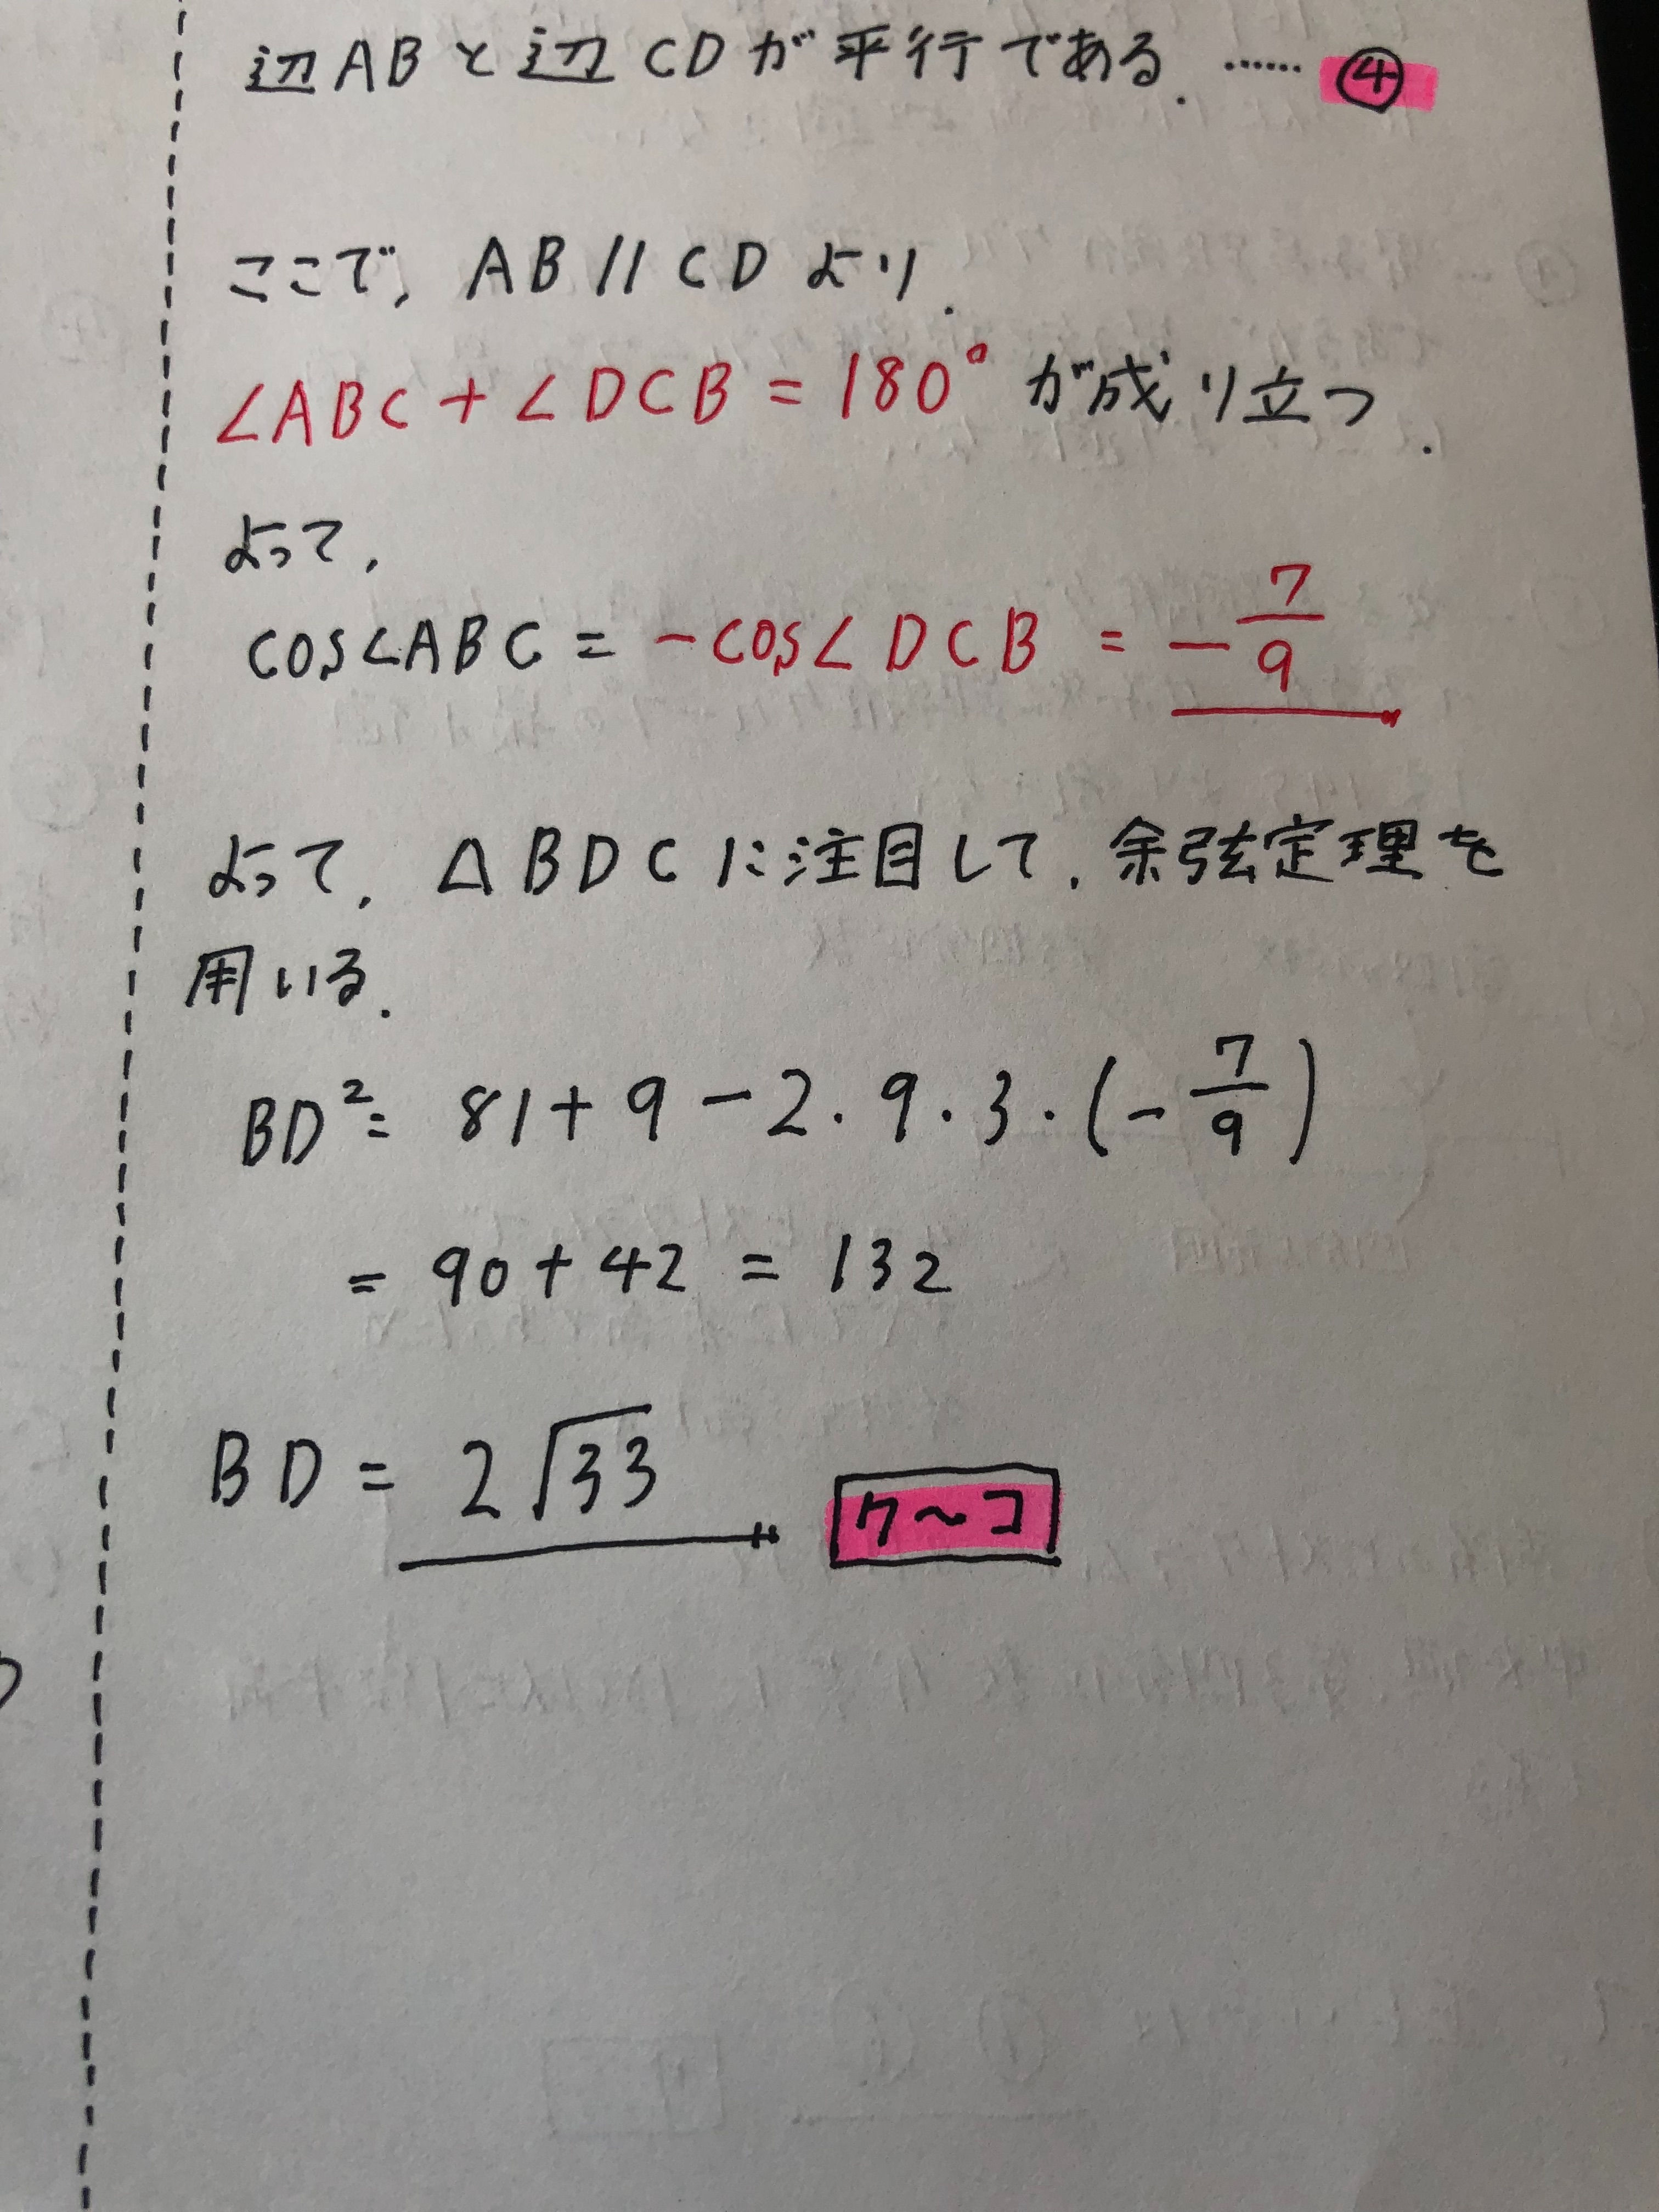 辺ABと辺CDが平行である. …… ④
ここで, AB // CDより.
∠ABC + ∠DCB = 180° が成り立つ.
よって,
cos∠ABC = -cos∠DCB = -7/9
よって, △BDCに注目して, 余弦定理を
用いる.
BD² = 81 + 9 - 2・9・3・(-7/9)
= 90 + 42 = 132
BD = 2√33 ク～コ